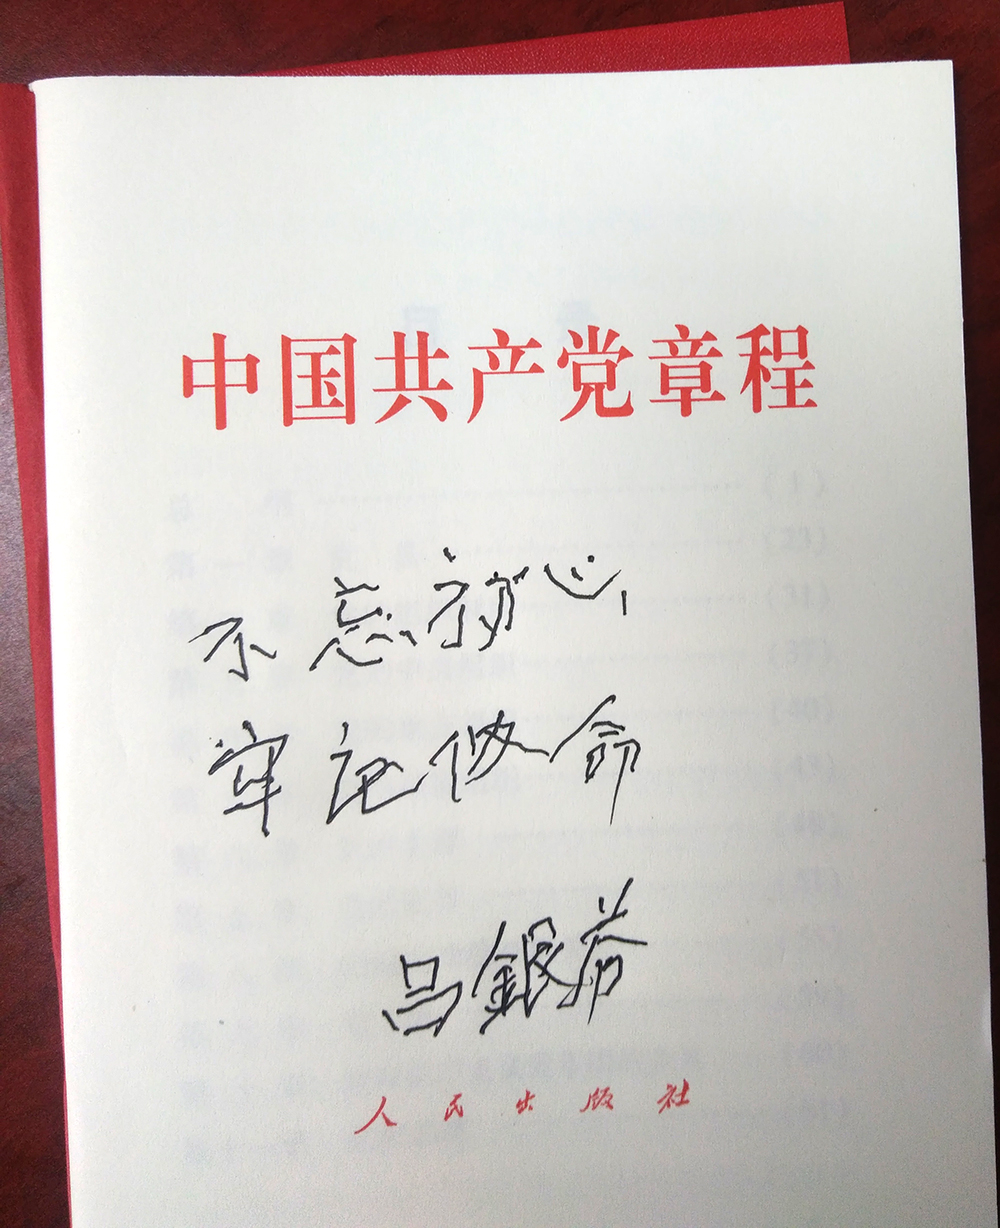 中国共产党章程
不忘初心,
牢记使命
吕銀
人民出版社